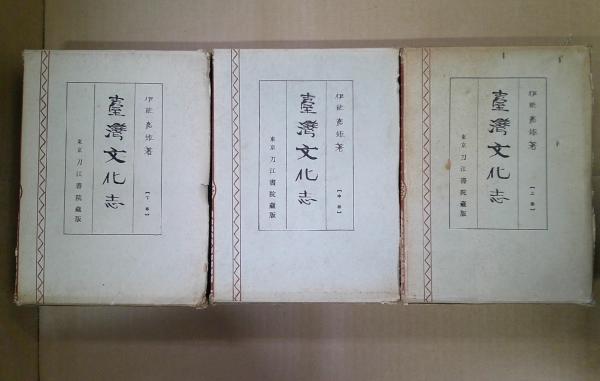 伊能嘉矩著
臺灣文化志
【上卷】
東京 刀江書院藏版
伊能嘉矩著
臺灣文化志
【中卷】
東京 刀江書院藏版
伊能嘉矩著
臺灣文化志
【下卷】
東京 刀江書院藏版